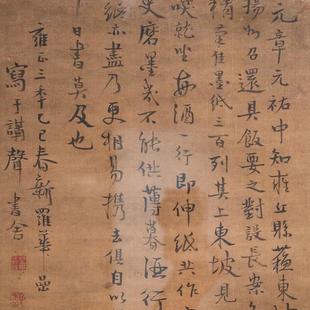 元章元祐中知雍丘縣蘇東坡
揚州召還具飯要之對設長案各
精筆佳墨紙三百列其上東坡見
然就坐每酒一行即伸紙共作
史磨墨幾不能供薄暮酒行
紙亦盡乃更相易攜去俱自以
平日書莫及也
雍正三年乙巳春新羅華喦
寫于講聲書舍